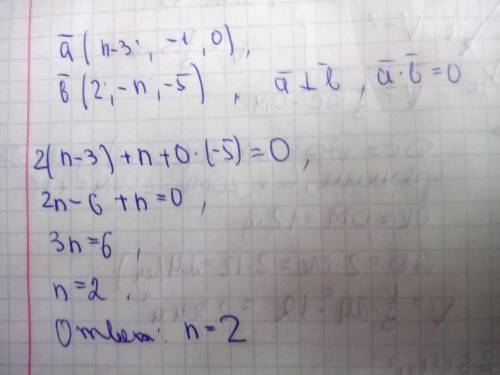 a̅ (n-3; -1, 0),
b̅ (2; -n, -5), a̅ ⊥ b̅, a̅·b̅ = 0
2(n-3)+n+0·(-5)=0,
2n-6+n=0,
3n=6,
n=2.
Ответ: n=2